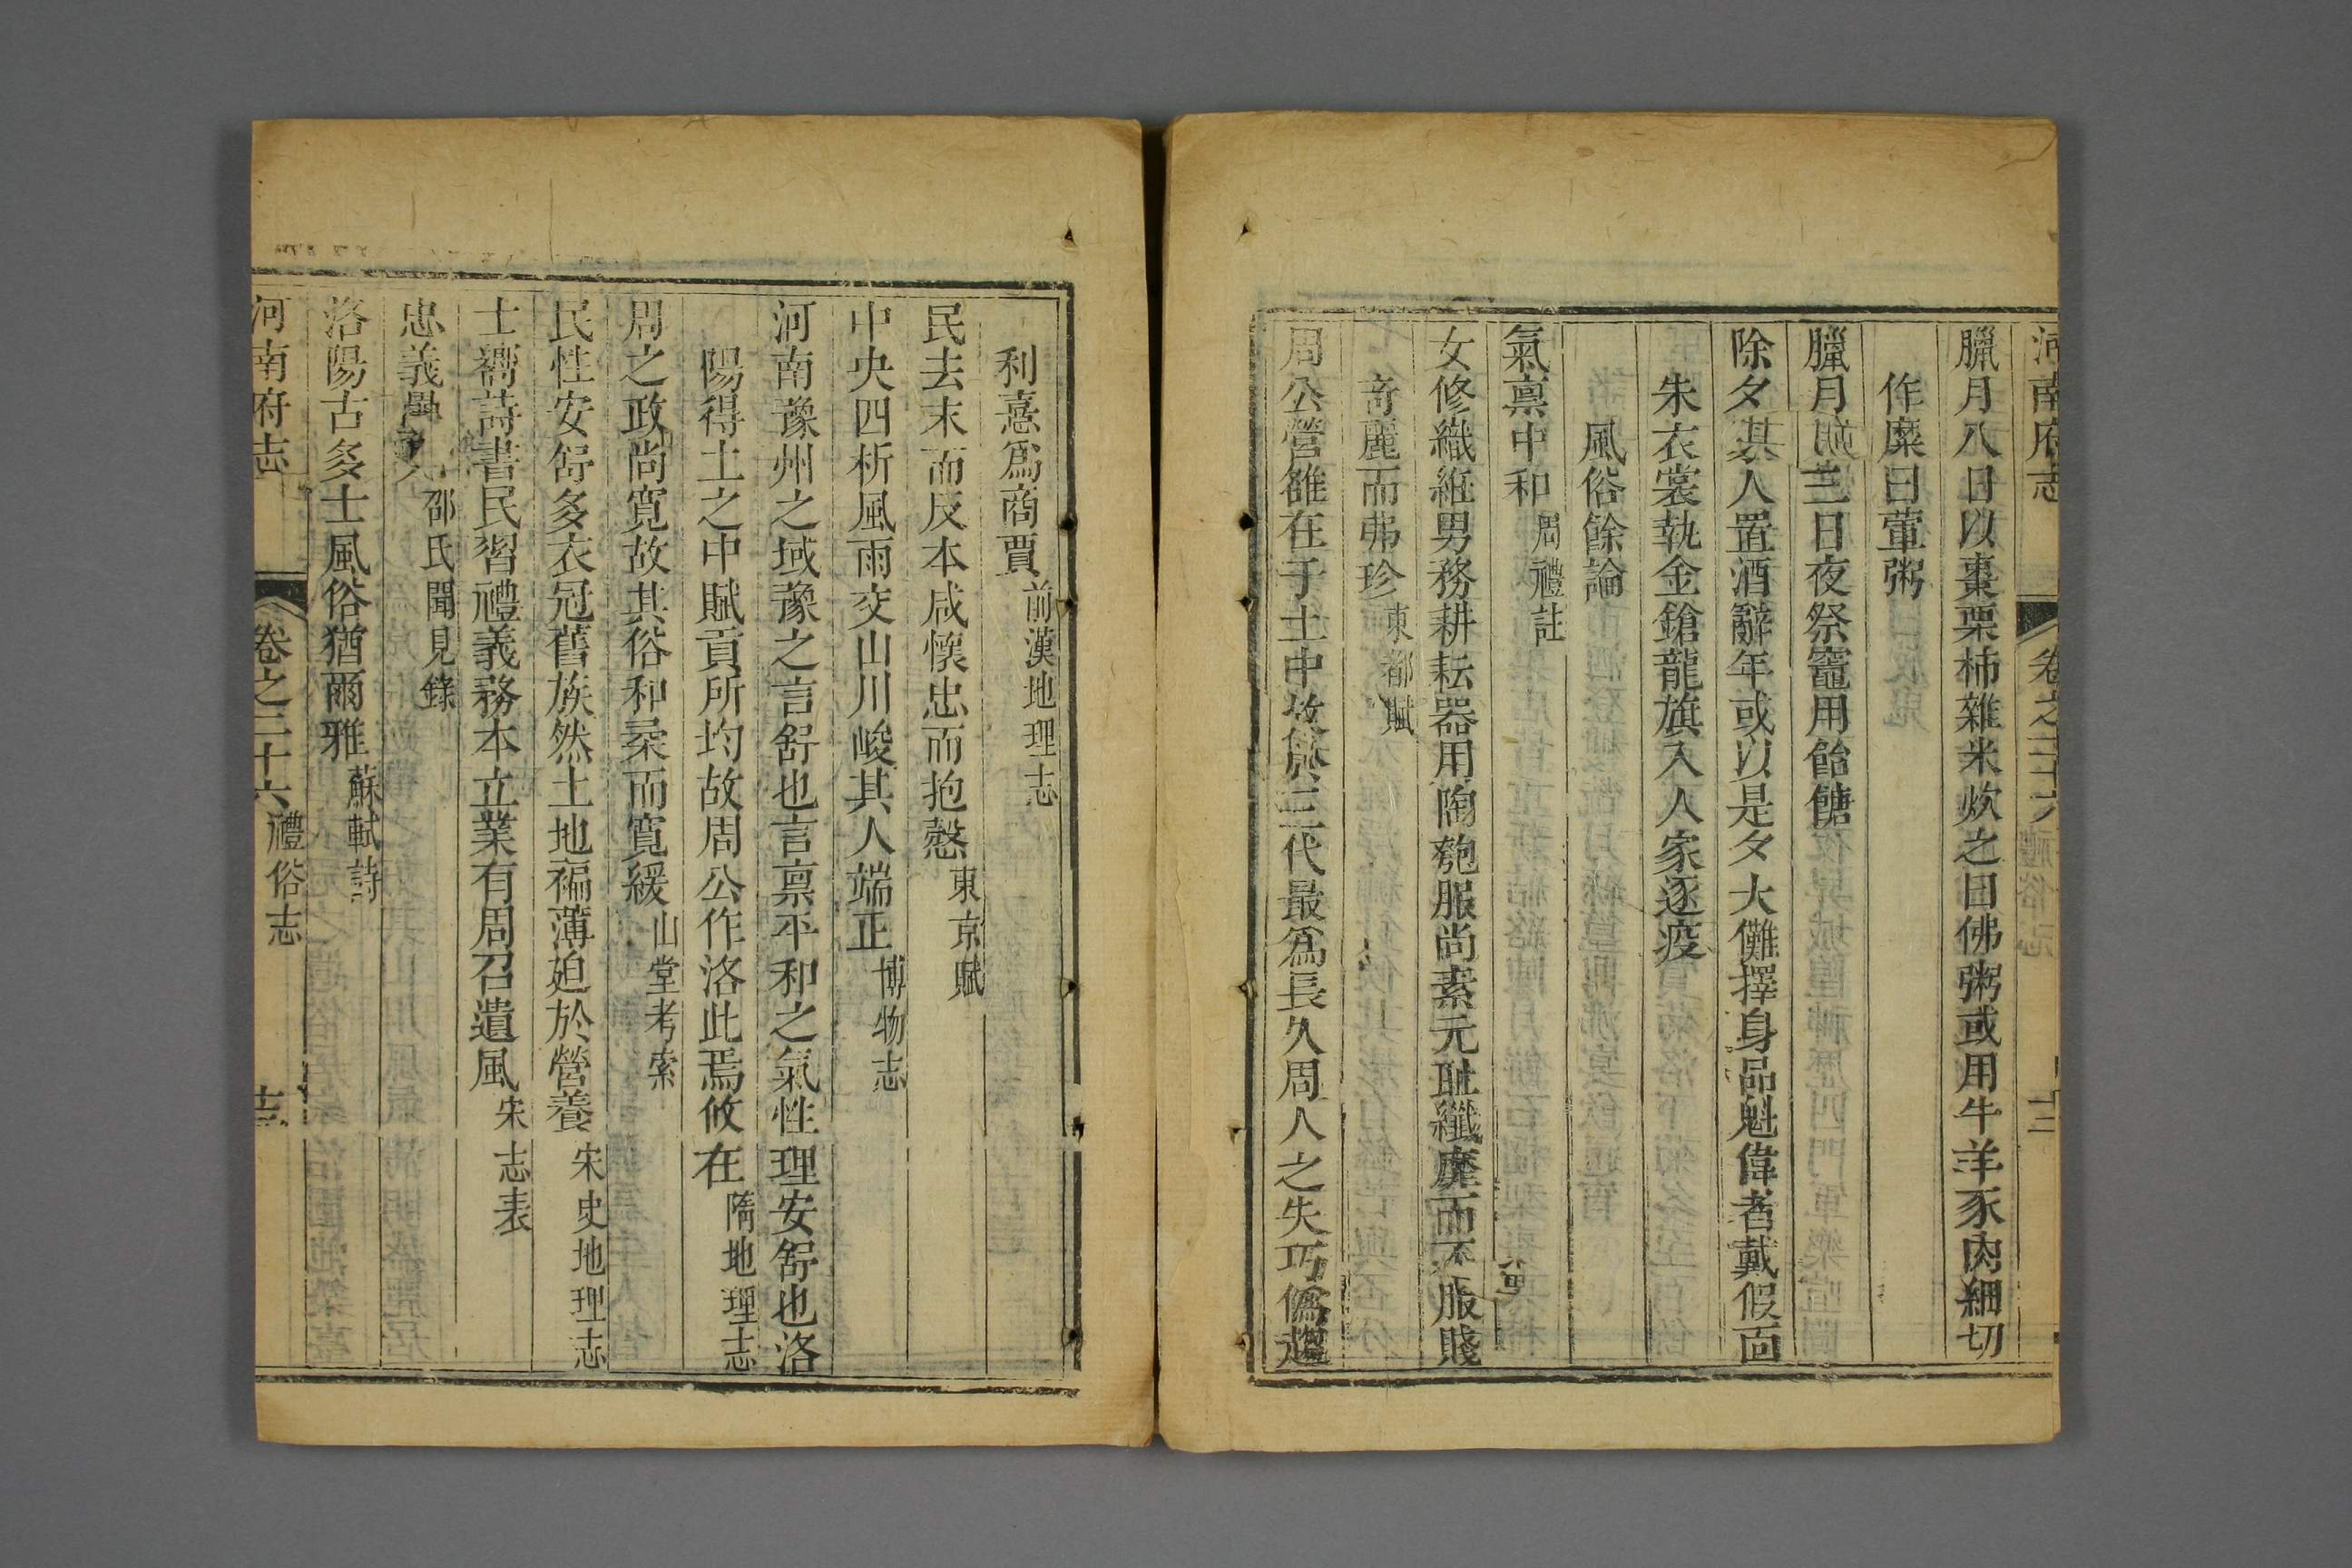 河南府志 卷之二十六 禮俗志 十二
臘月八日以棗栗柿雜米炊之曰佛粥或用牛羊豕肉細切
作糜曰葷粥
臘月 三日夜祭竈用飴餹
除夕其人置酒辭年或以是夕大儺擇身品魁偉者戴假面
朱衣裳執金鎗龍旗入人家逐疫
風俗餘論
氣禀中和 周禮註
女修織絍男務耕耘器用陶匏服尚素元耻纖靡而不服賤
奇麗而弗珍 東都賦
周公營雒在于土中 於三代最爲長久周人之失巧僞趨
利憙爲商賈 前漢地理志
民去末而反本咸懷忠而抱慤 東京賦
中央四析風雨交山川峻其人端正 博物志
河南豫州之域豫之言舒也言禀平和之氣性理安舒也洛
陽得土之中賦貢所均故周公作洛此焉攸在 隋地理志
周之政尚寛故其俗和柔而寛緩 山堂考索
民性安舒多衣冠舊族然土地褊薄廹於營養 宋史地理志
士嚮詩書民習禮義務本立業有周召遺風 宋志表
忠義學 邵氏聞見錄
洛陽古多士風俗猶爾雅 蘇軾詩
河南府志 卷之二十六 禮俗志 十三